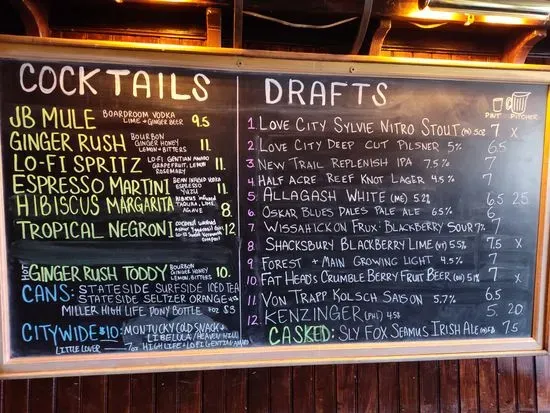 COCKTAILS
JB MULE BOARDROOM VODKA LIME + GINGER BEER 9.5
GINGER RUSH BOURBON GINGER HONEY LEMON + BITTERS 11
LO-FI SPRITZ LO-FI GENTIAN AMARO GRAPEFRUIT, LEMON ROSEMARY 11
ESPRESSO MARTINI BEAN INFUSED VODKA ESPRESSO YUZU 11
HIBISCUS MARGARITA HIBISCUS INFUSED TEQUILA, LIME AGAVE 8
TROPICAL NEGRONI COCONUT WASHED 12
HOT GINGER RUSH TODDY BOURBON GINGER HONEY LEMON, BITTERS 10.
CANS: STATESIDE SURFSIDE ICED TEA
STATESIDE SELTZER ORANGE
MILLER HIGH LIFE PONY BOTTLE 7oz $3
CITYWIDE $10: MONTUCKY COLD SNACK + LIBELULA/HEAVEN HILL
LITTLE LOVER 7oz HIGH LIFE + LOFI GENTIAN AMARO
DRAFTS
PINT PITCHER
1 LOVE CITY SYLVIE NITRO STOUT 7 X
2. LOVE CITY DEEP CUT PILSNER 5% 6.5
3. NEW TRAIL REPLENISH IPA 7.5% 7
4. HALF ACRE REEF KNOT LAGER 4.5% 7
5 ALLAGASH WHITE (ME) 5.2% 6.5 25
6. OSKAR BLUES DALES PALE ALE 6.5% 6
7. WISSAHICKON FRUX: BLACKBERRY SOUR 7% 7
8 SHACKSBURY BLACKBERRY LIME (VT) 5.5% 7.5 X
9. FOREST + MAIN GROWING LIGHT 4.5% 7
10. FAT HEAD'S CRUMBLE BERRY FRUIT BEER (OH) 5.1% 7 X
11. VON TRAPP KOLSCH SAISON 5.7% 6.5
12. KENZINGER (PHL) 4.5% 5. 20
CASKED: SLY FOX SEAMUS IRISH ALE 7.5